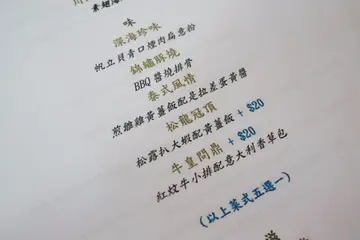 素翅
味
深海珍味
帆立貝青口煙肉扁意粉
錦繡豚燒
BBQ醬燒排骨
泰式風情
煎雞雞黃薑飯配是拉差蛋黃醬
松龍冠頂 + $20
松露扒大蝦配黃薑飯
牛皇問鼎 + $20
紅炆牛小排配意大利香草包
(以上菜式五選一)